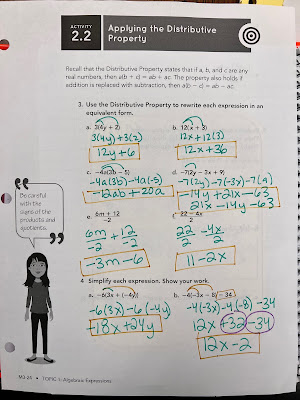 ACTIVITY
2.2
Applying the Distributive
Property
Recall that the Distributive Property states that if a, b, and c are any
real numbers, then a(b + c) = ab + ac. The property also holds if
addition is replaced with subtraction, then a(b − c) = ab − ac.
3. Use the Distributive Property to rewrite each expression in an
equivalent form.
a. 3(4y + 2)
b. 12(x + 3)
3(4y) + 3(2)
12x + 12(3)
12y + 6
12x + 36
c. −4a(3b − 5)
d. −7(2y − 3x + 9)
-4a(3b) -4a(-5)
-7(2y) -7(-3x) -7(9)
-12ab + 20a
-14y + 21x - 63
21x - 14y - 63
e. 6m + 12
−2
f. 22 − 4x
2
6m + 12
-2 -2
22 -4x
2 2
-3m - 6
11 - 2x
Be careful
with the
signs of the
products and
quotients.
4 Simplify each expression. Show your work.
a. −6(3x + (−4y))
b. −4(−3x − 8) − 34
-6(3x) -6(-4y)
-4(-3x) -4(-8) -34
-18x + 24y
12x +32 -34
12x - 2
M2-24 • TOPIC 1: Algebraic Expressions